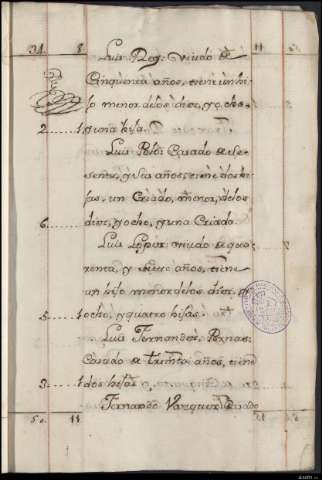 34. 8 11
Luis Rey viudo de
Cinquenta años, tiene un hi-
jo menor delos diez, y ocho,
2 1 y una hija.
Luis Casado de se-
senta, y años, tiene dos hi-
jas, un Criado, menor, delos
6 1 diez, y ocho, y una Criada
Luis Lopez viudo de qua-
renta, y años, tiene
un hijo menor delos diez, y
5 1 ocho, y quatro hijas.
Luis Fernandez,
Casado de treinta años, tiene
3 1 dos hijas
Fernando Vazquez
50. 11